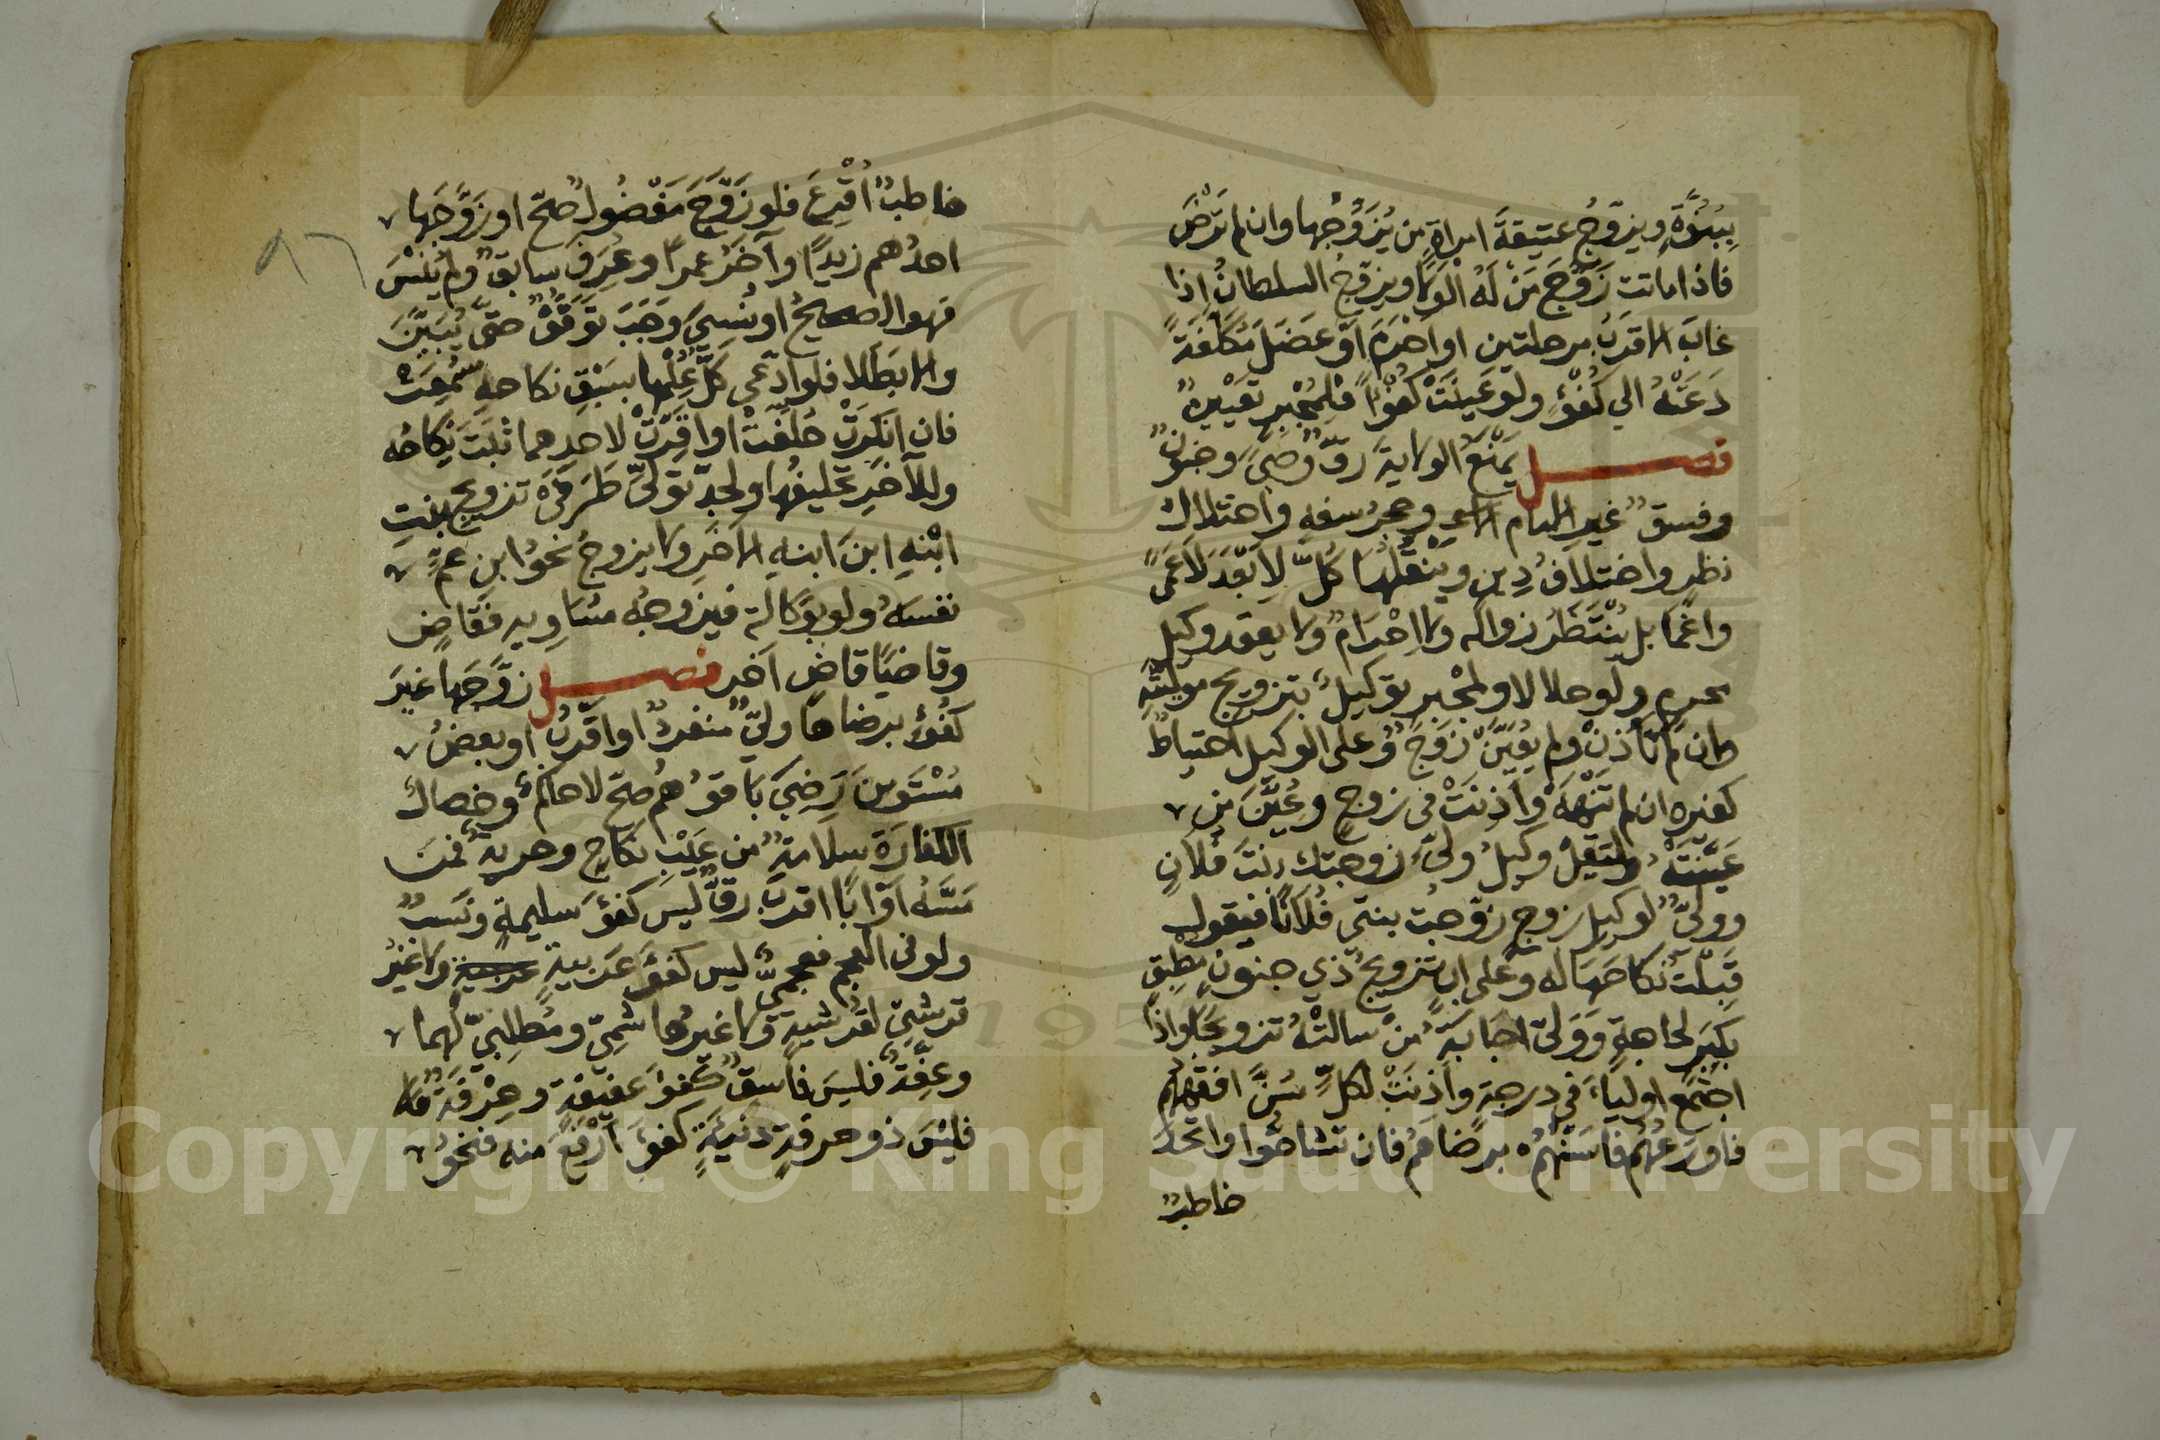 ببُنُوَّةٍ ويزوّجُ عتيقةَ امراةٍ من يُزَوِّجُها وان لم تَرْضَ
فاذا ماتت زَوَّجَ مَنْ لَهُ الوَلَا ويزوّجُ السلطانُ اذا
غابَ الاقربُ مرحلتين او احْرَمَ اَوْ عَضَلَ مُكَلَّفَةً
دَعَتْهُ الي كُفْؤٍ ولو عَيَّنَتْ كُفْؤًا فلِمُجْبِرٍ تَعْيِيْنُ
فصل يَمْنَعُ الولايةَ رِقٌّ وَصِبًى وجنونٌ
وفسقٌ غيرِ الامام الاعظم وحجرُ سفهٍ واختلالُ
نظرٍ واختلافُ دِينٍ ويَنْقُلُهَا كُلٌّ لِاَبْعَدَ لَا عَمًى
واغْمَا بل يُنْتَظَرُ زواله ولا اِحْرَامٌ ولا يعقد وكيل
محرم ولو حلالا ولمُجْبِرٍ توكيلٌ بتزويج موليته
وان لم تَأْذَنْ ولم يُعَيِّنْ زَوْجًا وعلى الوكيل احتياطٌ
كغيره ان لم تَنْهَهُ وأَذِنَتْ في زوج وعُيِّنَ من
عَيَّنَتْهُ وليَقُلْ وكيلُ وليّ زوجتك بنتَ فلانٍ
ووليٌّ لوكيل زوج زوّجتُ بنتي فُلَانًا فيقول
قَبِلْتُ نكاحَهَا له وعلى ابٍ تزويجُ ذي جنونٍ مُطْبِقٍ
بكِبَرٍ لحاجةٍ وَوَلِيٍّ اجابَةُ مَنْ سالتْهُ تزويجًا واذا
اجتمَعَ اولياءُ في درجةٍ واَذِنَتْ لكُلٍّ سُنَّ افقهُهُم
فاورَعُهُم فاسَنُّهُم برضاهُم فان تشاحُّوا واتَّحَدَ
خاطبٌ
خاطبٌ اُقْرِعَ فلو زَوَّجَ مَفْضُولٌ صحّ او زَوَّجَها
احدُهم زيدًا وآخَرُ عمرًا وعُرِفَ سابقٌ ولم يُنْسَ
فهو الصحيحُ او نُسِيَ وَجَبَ تَوَقُّفٌ حتّى يَتَبَيَّنَ
والا بَطَلَا فلو ادّعى كُلٌّ عِلْمَها بسَبْقِ نكاحه سُمِعَتْ
فان انكرَتْ حُلِّفَتْ او اقرَّتْ لاحدهما ثبَتَ نِكاحُه
وللآخَرِ تحليفُها ولجدّ توَلِّي طَرَفَي تزويج بنتِ
ابْنِهِ ابنَ ابنهِ الاخَرِ ولا يزوجُ نحوُ ابن عمٍّ
نفسَهُ ولو بوَكالة فيزوجُه مُساويه فقاضٍ
وقاضيًا قاضٍ آخر فصل زَوَّجَها غيرَ
كُفُؤٍ برضاها وليٌّ منفردٌ او اقربُ او بعضُ
مُسْتَوينَ رَضِيَ بَاقوهُم صحّ لا حاكمٌ وخصالُ
الكفاءة سلامةٌ من عَيْبِ نكاحٍ وحريةٌ فمَن
مَسَّهُ اَوْ اَبًا اقربَ رقٌّ ليس كفؤَ سليمةٍ ونَسَبٌ
ولو في العجم فعجميٌّ ليس كفؤَ عَرَبيةٍ ولا غيرُ
قرشيّ لقُرشيةٍ ولا غيرُ هاشميّ ومُطلبيّ لهما
وعِفَّةٌ فليسَ فاسقٌ كفؤَ عفيفةٍ وحِرْفَةٌ
فليْسَ ذو حرفةٍ دنيَّةٍ كفؤَ اَرْفَعَ منه فنحوُ